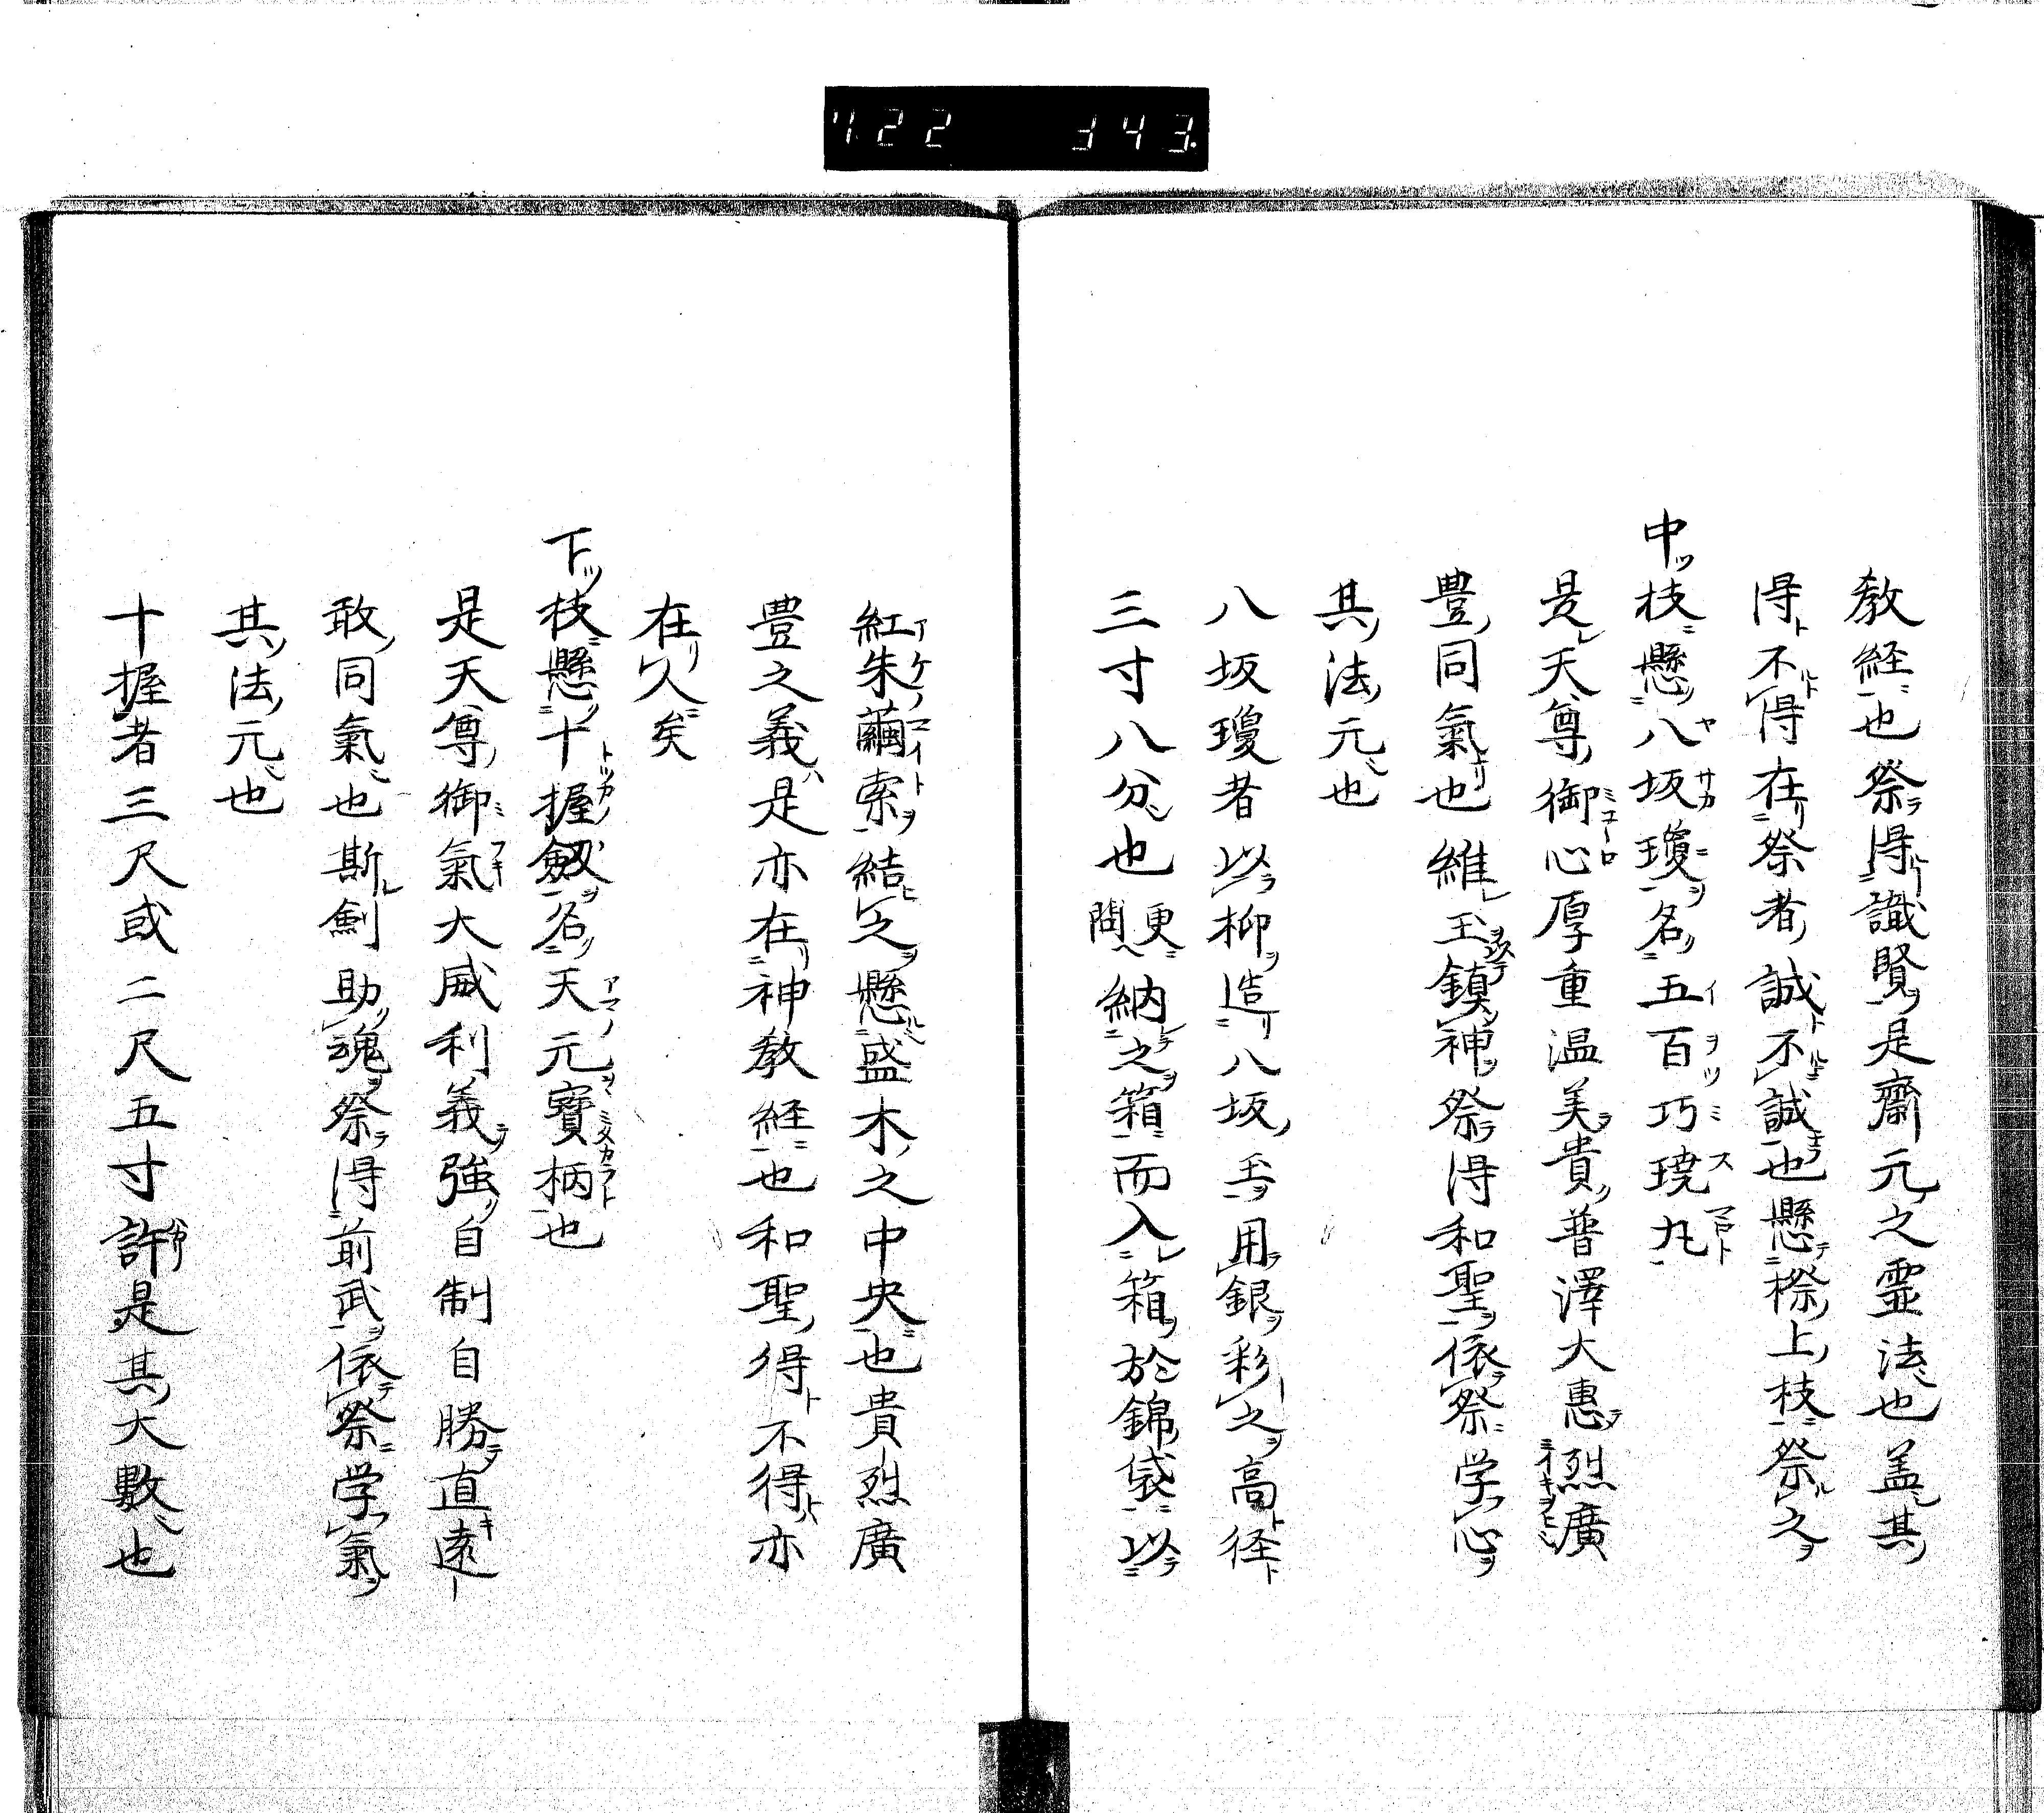 722 343.
教経也祭得識賢是齋元之霊法也盖其
得不得在祭者誠不誠也懸榊上枝祭之
中ツ枝懸八坂瓊名五百巧琓丸
是天尊御心厚重温美貴普澤大惠烈廣
豊同氣也維玉鎮神祭得和聖依祭学心
其法元也
八坂瓊者以柳造八坂玉用銀彩之高径
三寸八分也更問納之箱而入箱於錦袋以
紅朱繭索結之懸盛木之中央也貴烈廣
豊之義是亦在神教経也和聖得不得亦
在人矣
下ツ枝懸十握劔名天元寶柄也
是天尊御氣大威利義強自制自勝直遠
敢同氣也斯劍助魂祭得前武依祭学氣
其法元也
十握者三尺或二尺五寸許是其大數也